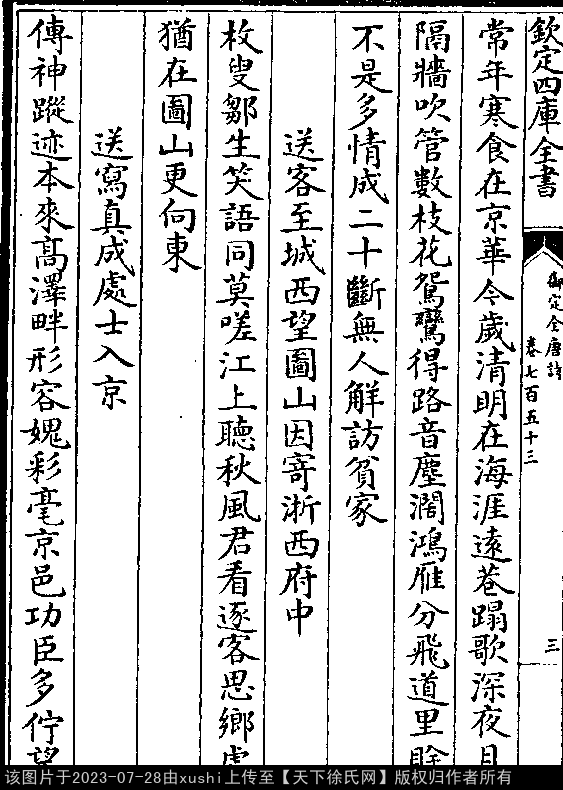 欽定四庫全書
御定全唐詩
卷七百五十三
三
常年寒食在京華今歲清明在海涯遠巷蹋歌深夜月
隔牆吹管數枝花鴛鸞得路音塵濶鴻雁分飛道里賒
不是多情成二十斷無人解訪貧家
送客至城西望圖山因寄浙西府中
枚叟鄒生笑語同莫嗟江上聽秋風君看逐客思鄉處
猶在圖山更向東
送寫真成處士入京
傳神蹤迹本來高澤畔形容媿彩毫京邑功臣多佇望
该图片于2023-07-28由xushi上传至【天下徐氏网】版权归作者所有